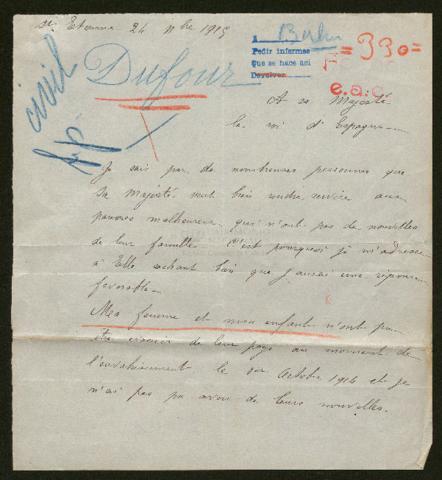 St Etienne 24 9bre 1915
A Berlin
Pedir informes
Que se hace aci
Devolver
=330=
e.a.c.
civil
Dufour
A sa Majesté
le roi d'Espagne
Je sais par de nombreuses personnes que
Sa Majesté veut bien rendre service aux
pauvres malheureux qui n'ont pas de nouvelles
de leur famille. C'est pourquoi je m'adresse
à Elle sachant bien que j'aurai une réponse
favorable.
Ma femme et mes enfants n'ont pu
être évacués de leur pays au moment de
l'envahissement le 1er Octobre 1914 et je
n'ai pas pu avoir de leurs nouvelles.